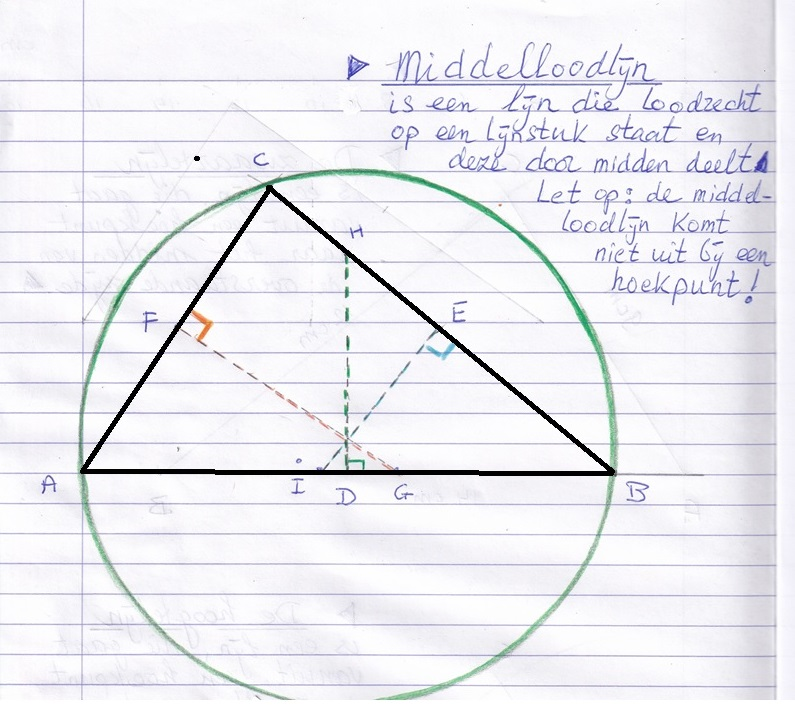 Middelloodlijn
is een lijn die loodrecht
op een lijnstuk staat en
deze door midden deelt.
Let op: de middel-
loodlijn komt
niet uit bij een
hoekpunt!
C
H
F
E
A
I
D
G
B